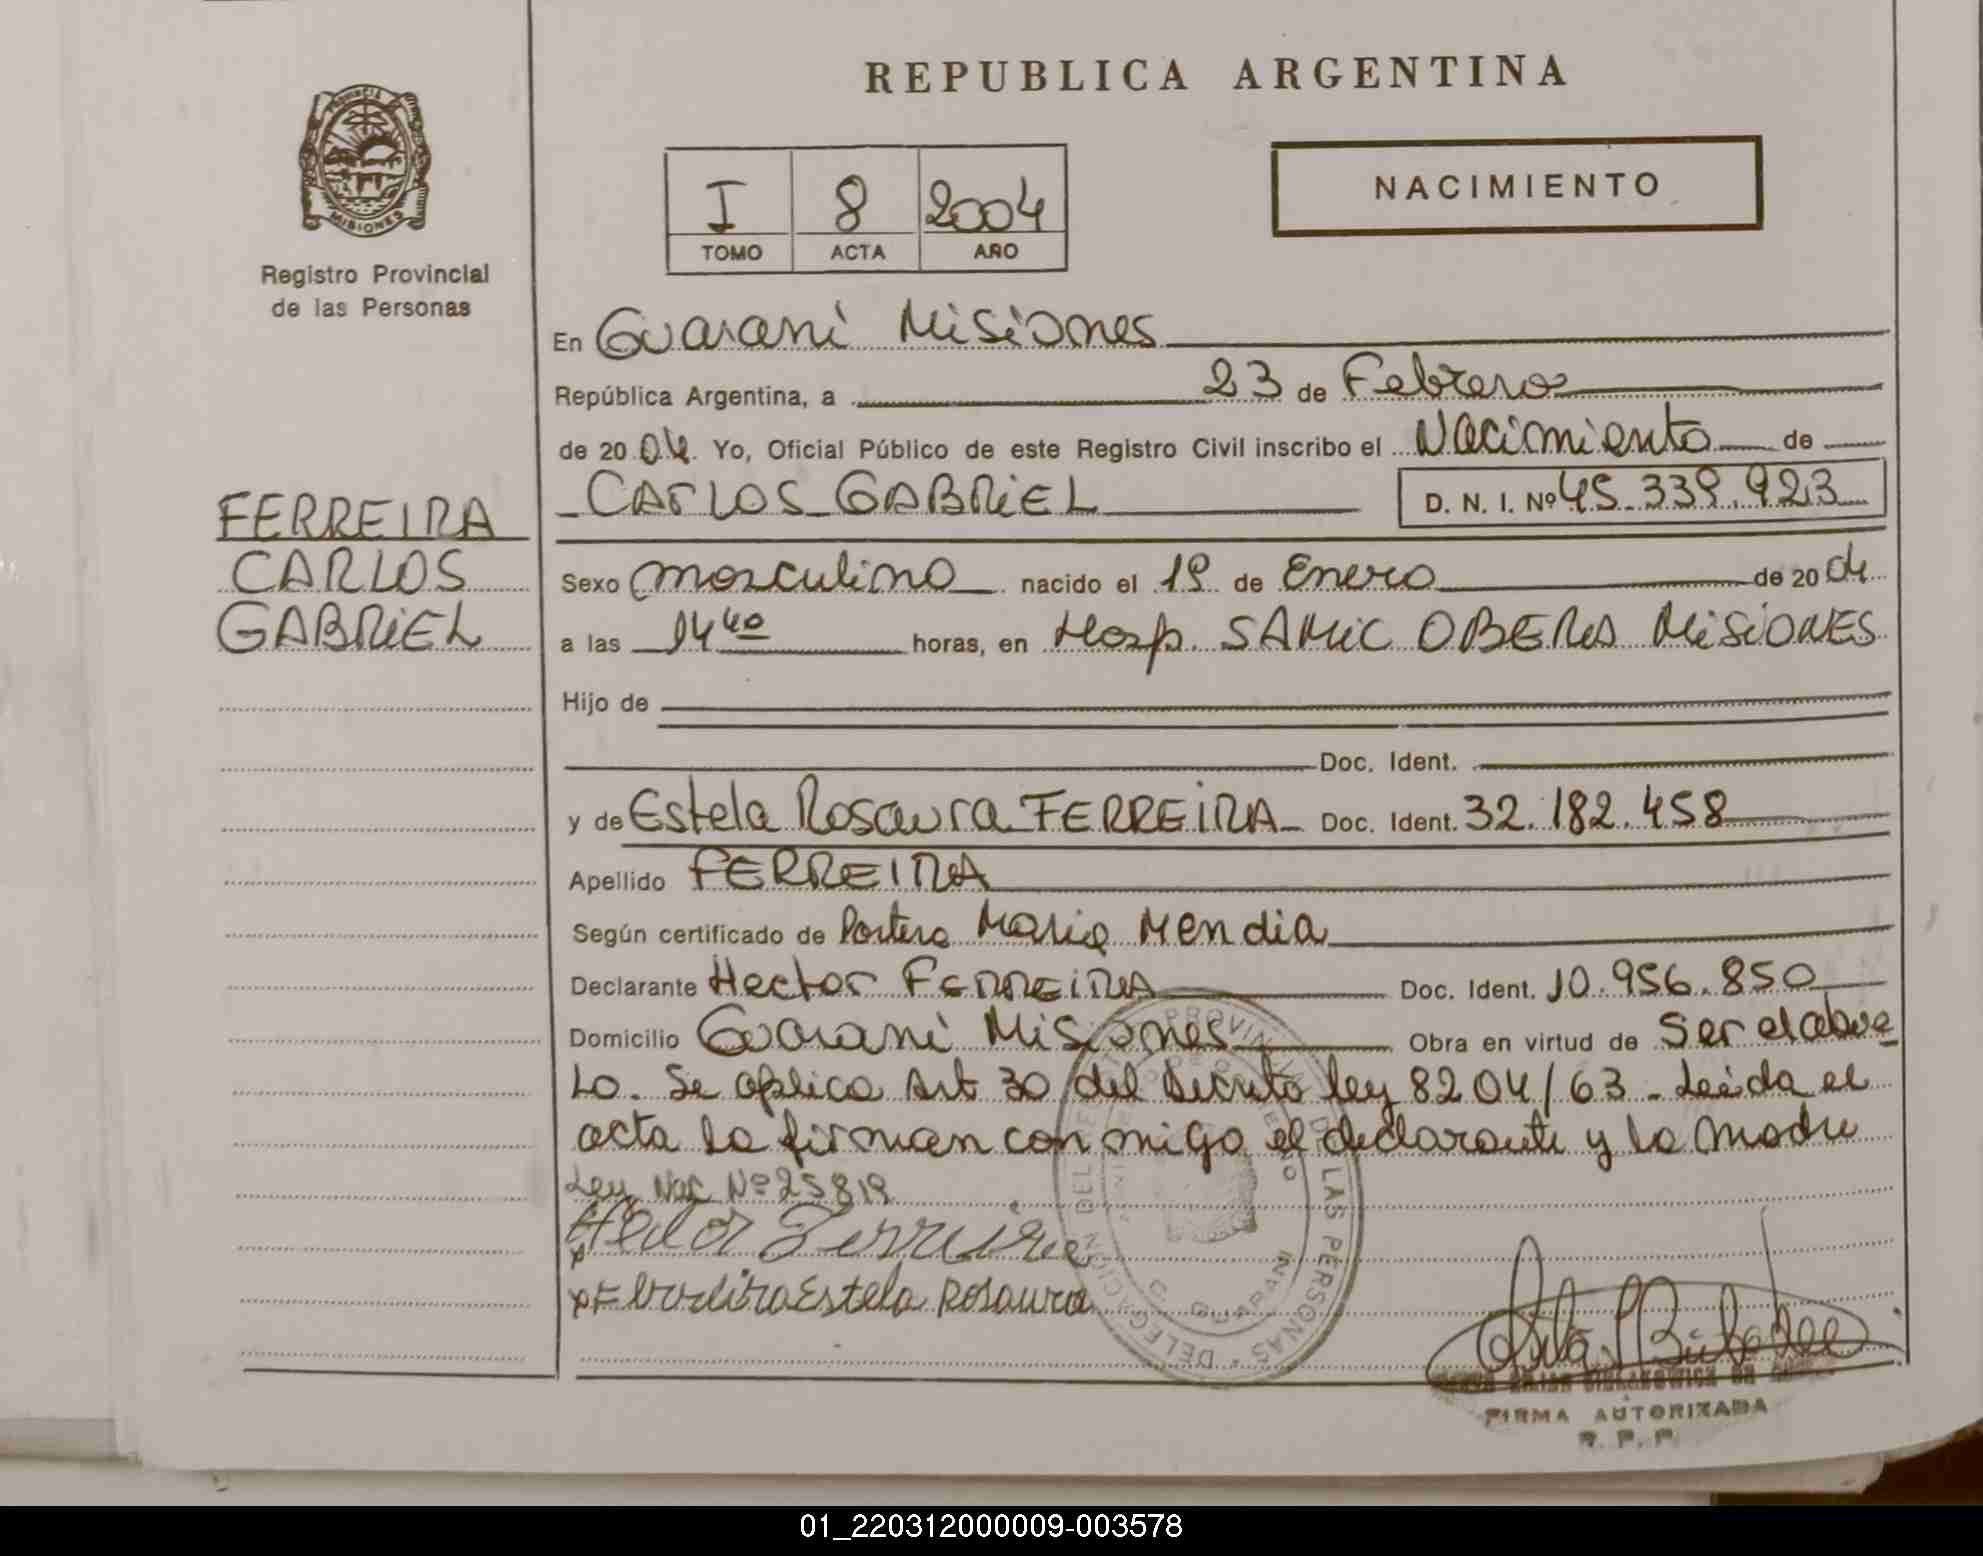 REPUBLICA ARGENTINA
PROVINCIA DE
MISIONES
Registro Provincial
de las Personas
I 8 2004
TOMO ACTA AÑO
NACIMIENTO
En Guarani Misiones
República Argentina, a 23 de Febrero
de 20 04. Yo, Oficial Público de este Registro Civil inscribo el Nacimiento de
CARLOS GABRIEL D. N. I. Nº 45.339.923
FERREIRA
CARLOS
GABRIEL
Sexo masculino nacido el 19 de Enero de 20 04
a las 14 40 horas, en Hosp. SAMIC OBERA MISIONES
Hijo de
Doc. Ident.
y de Estela Rosaura FERREIRA Doc. Ident. 32.182.458
Apellido FERREIRA
Según certificado de Partera Maria Mendia
Declarante Hector FERREIRA Doc. Ident. 10.956.850
Domicilio Guarani Misiones Obra en virtud de Ser el abue
lo. Se aplica Art 30 del Decreto ley 8204/63 - Leida el
acta la firman conmigo el declarante y la madre
Ley Nac Nº 25819
Hector Ferreira
Estela Rosaura
DE LAS PERSONAS - DELEGACIÓN
GUARANI
FIRMA AUTORIZADA
R. P. P.
01_220312000009-003578